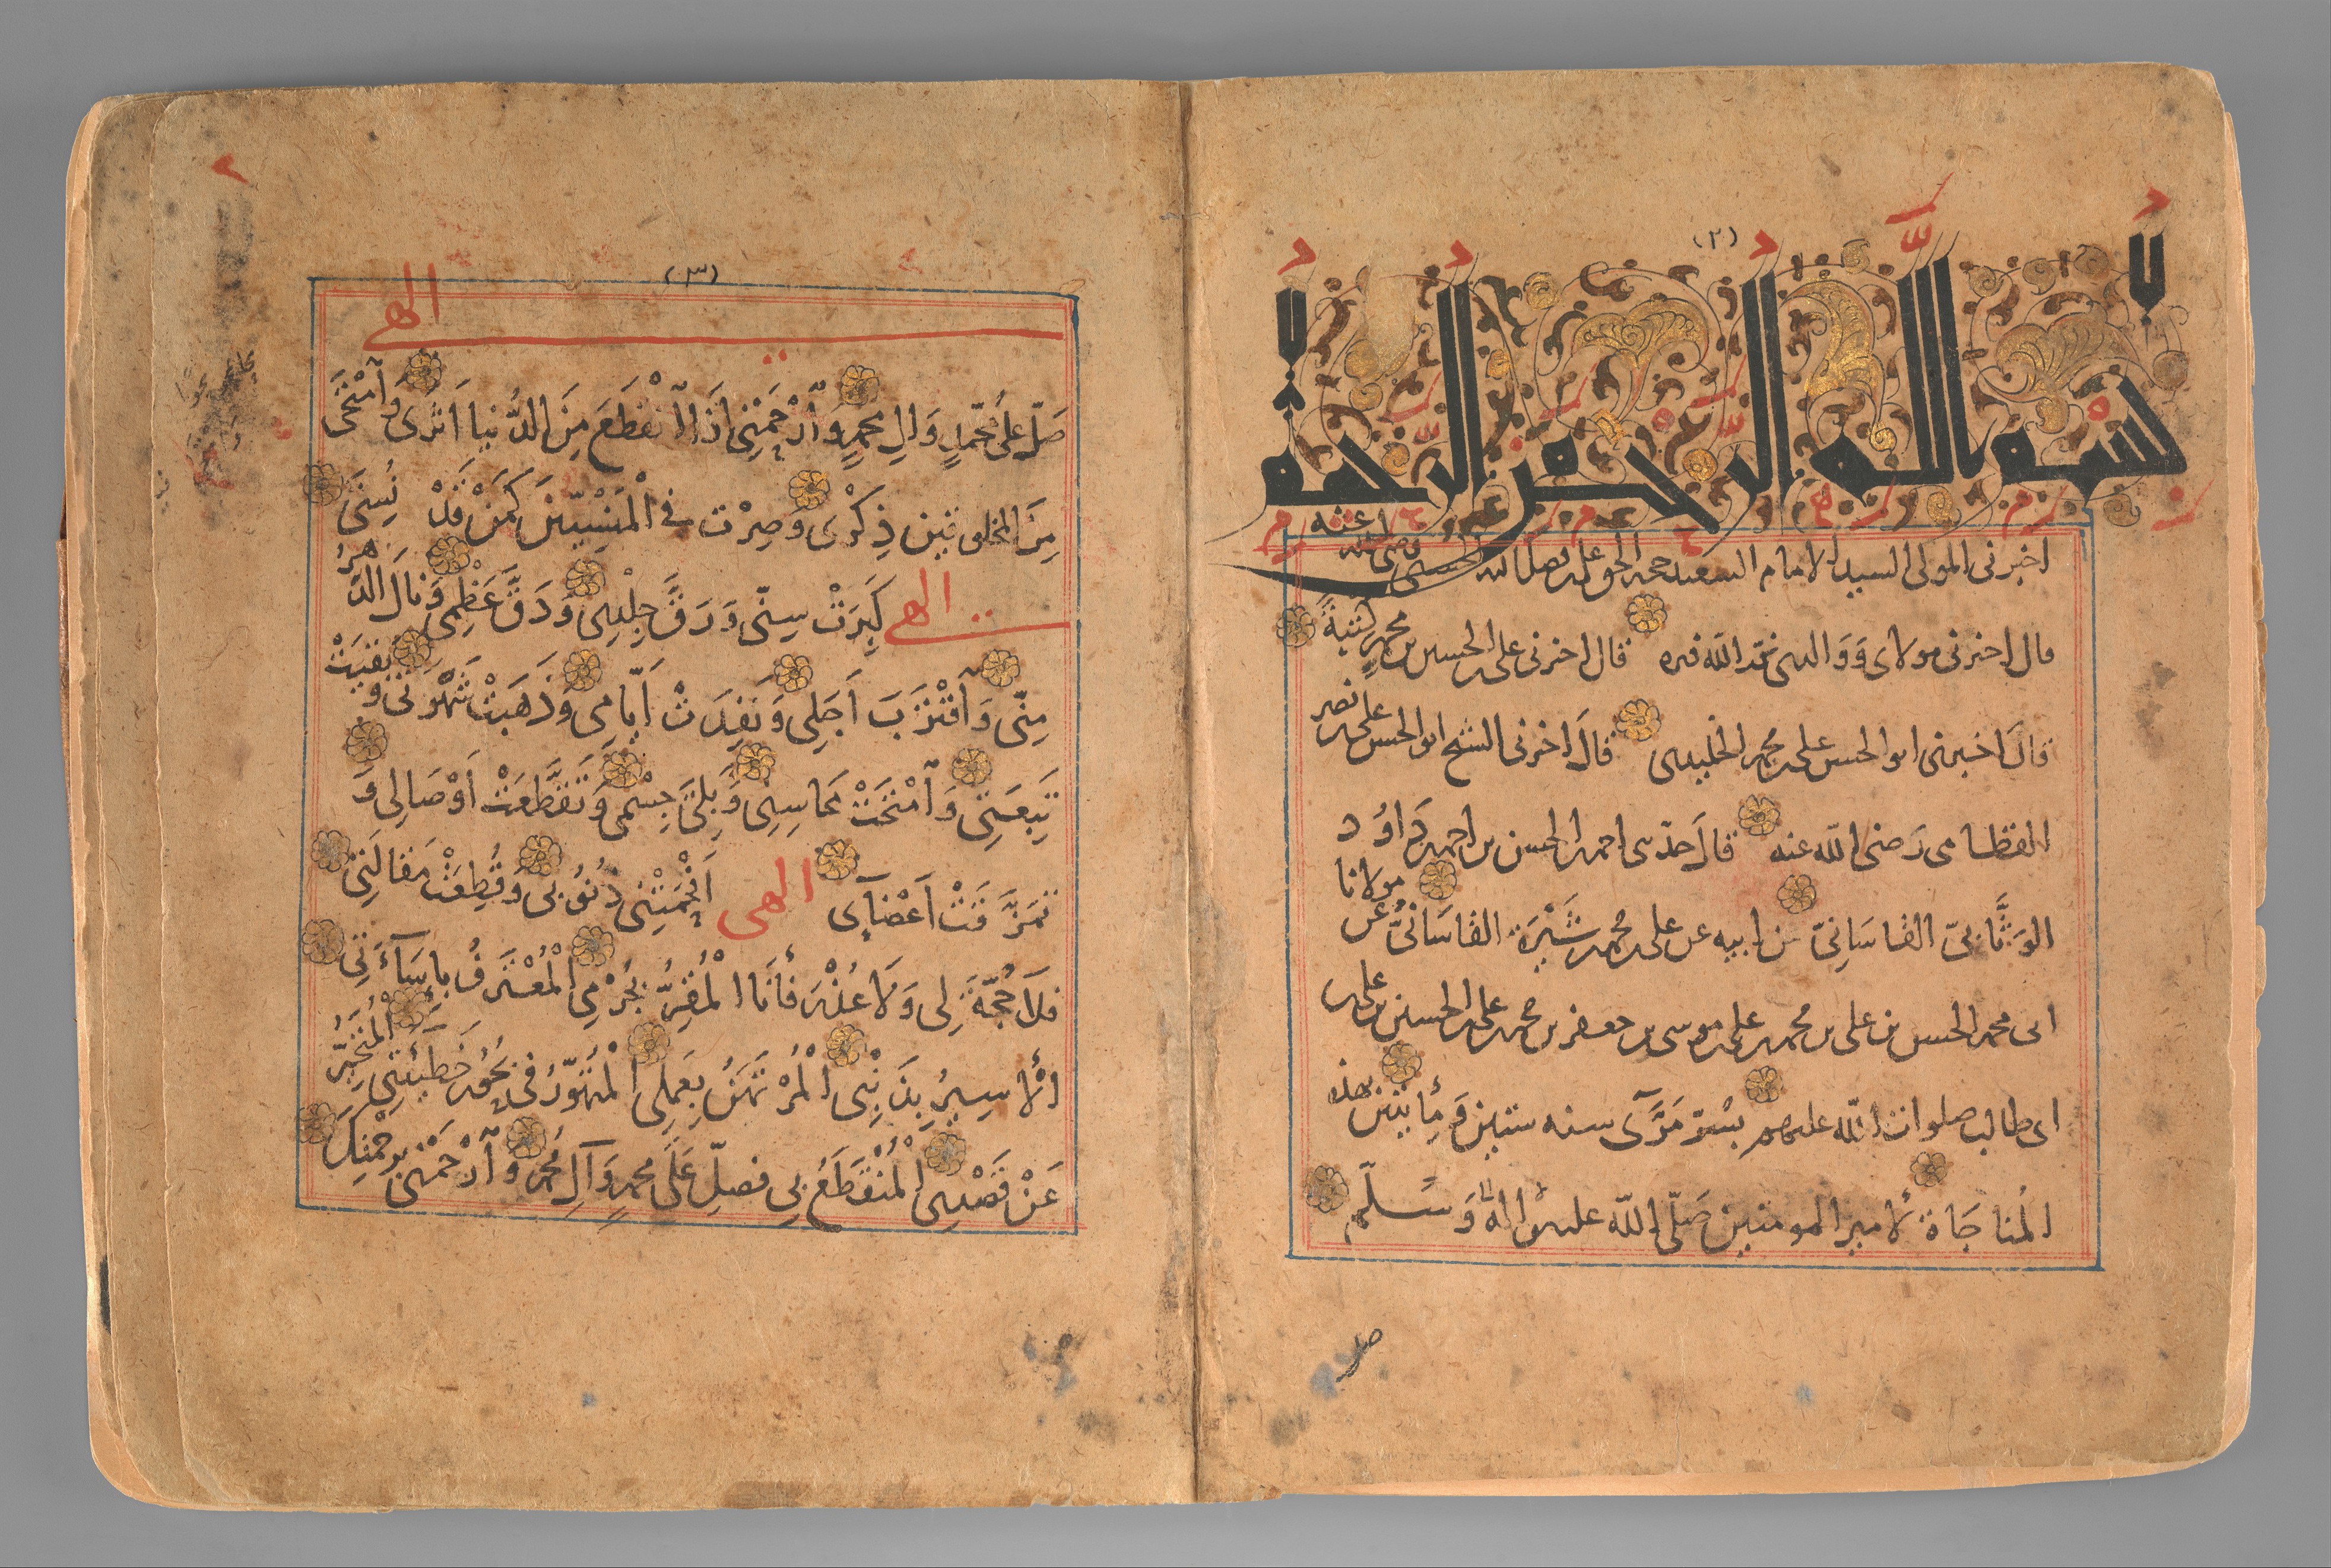 (٢)
بسم الله الرحمن الرحيم
اخبرني المولى السيد الامام السعيد الحسني رضى الله عنه
قال اخبرنى مولاى ووالدى قال اخبرنى على بن الحسين بن محمد
قال اخبرنى ابو الحسن على بن محمد الخليدى قال اخبرنى الشيخ ابو الحسن على بن نصر
القطامى رَضى الله عنه قالَ حدّثنى احمد بن الحسن بن احمد بن دَاوُد
الوَثَّابىّ القاسَانِىّ عن ابيه عن على بن محمد بن شَيْرَة القاسَانِىّ عن مولانا
ابى محمد الحسن بن على بن محمد بن على بن موسى بن جعفر بن محمد بن على بن الحسين بن على بن
ابى طالب صلوات الله عليهم بسُرّ مَرَّآى سنه ستين وَمِأيتين بهذه
المُناجَاة لأمير المومنين صَلّى الله عليه واله وَسَلّم
(٣)
الهى
صَلّ عَلى مُحَمّدٍ وَالِ محمدٍ وَٱرْحَمْنِى اِذَا ٱنْقَطَعَ مِنَ الدُّنيا اَثَرِى وَٱمْتَحَى
مِنَ المخلوقين ذِكْرِى وَصِرْت فى الْمَنْسِيّيْنَ كَمَنْ قَدْ نُسِىَ
الهى كَبِرَتْ سِنّى وَرَقَّ جِلْدِى وَدَقَّ عَظْمِى وَنَالَ الدَّهرُ
مِنّى وَٱقْتَرَبَ اَجَلِى وَنَفِدَتْ اَيّامِى وَذَهَبَتْ شَهْوَتى وَبَقِيَتْ
تَبِعَتِى وَٱمْتَحَتْ مَحَاسِنِى وَبَلِىَ جِسْمِى وَتَقَطَّعَتْ اَوْصَالِى وَ
تَمَزَّقَتْ اَعْضَآى الهى اَفْحَمَتْنِى ذُنُوُبى وَقُطِعَتْ مَقَالَتِى
فلاَ حُجَّةَ لِى وَلَا عُذْرَ فأَنَا الْمُقِرُّ بِجُرْمِى الْمُعْتَرفُ بِاِسَآءَتِى
اَلْأسِيرُ بِذَنْبِى الْمُرْتَهَنُ بِعَمِلِى الْمُتَهَوّرُ فى بُحُور خَطِيئَتِى الْمُتَحَيِّرُ
عَنْ قَصْدِى الْمُنْقَطَعُ بِى فصَلّ عَلَى محمدٍ وَآلِ مُحَمدٍ وَٱرْحَمْنى بِرَحْمَتِكَ